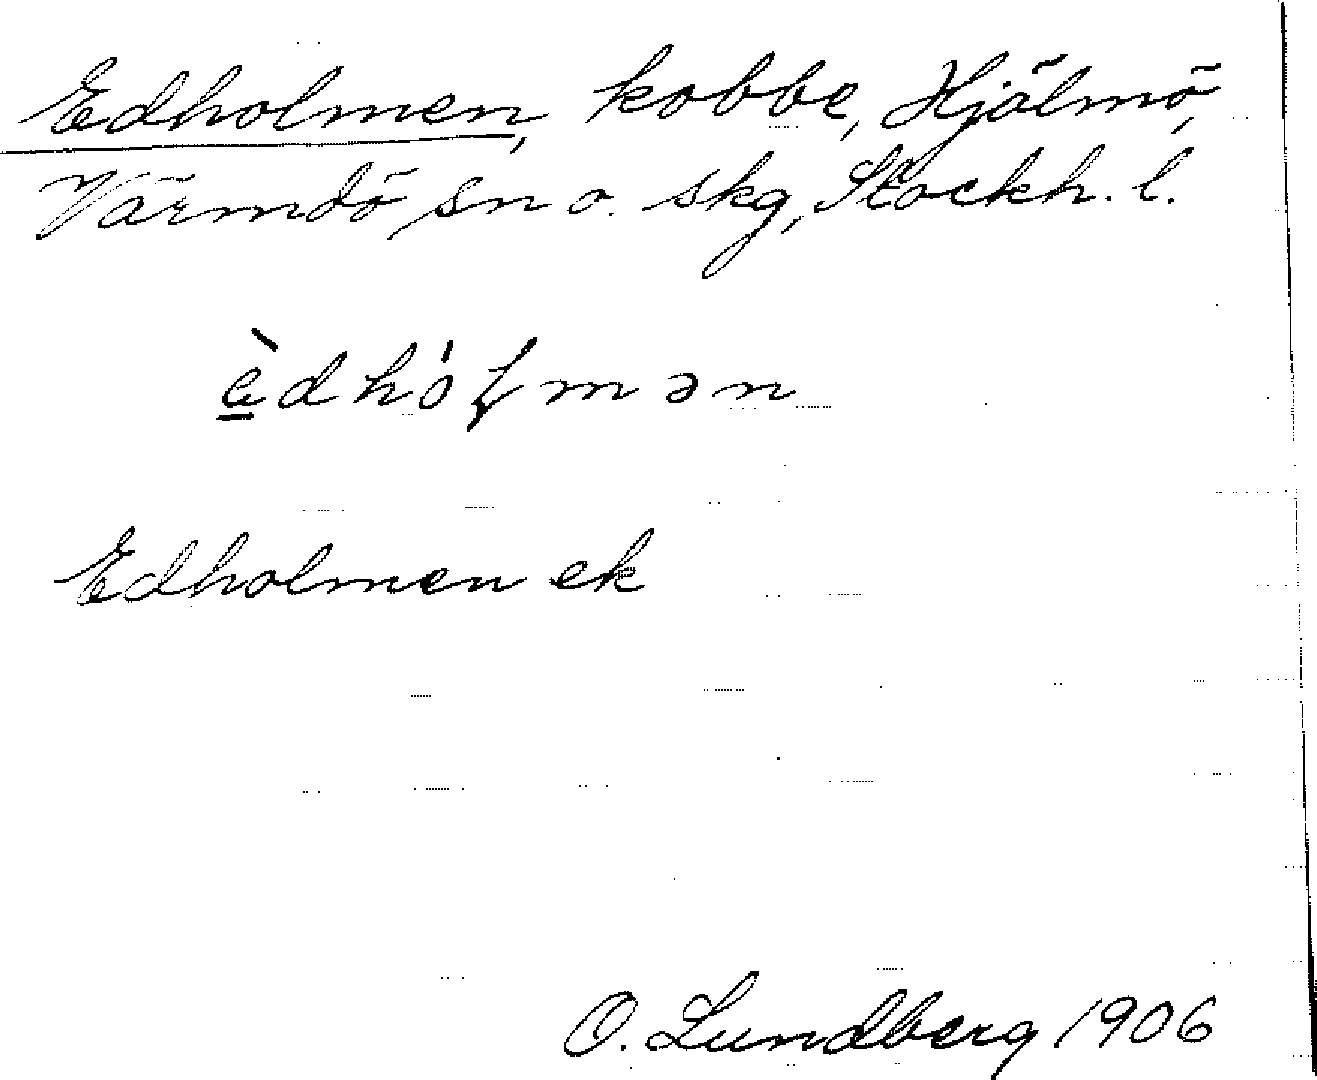 Edholmen, kobbe, Hjälmö,
Värmdö sn o. skg, Stockh. l.
è̲dhóƚmən
Edholmen ek
O. Lundberg 1906